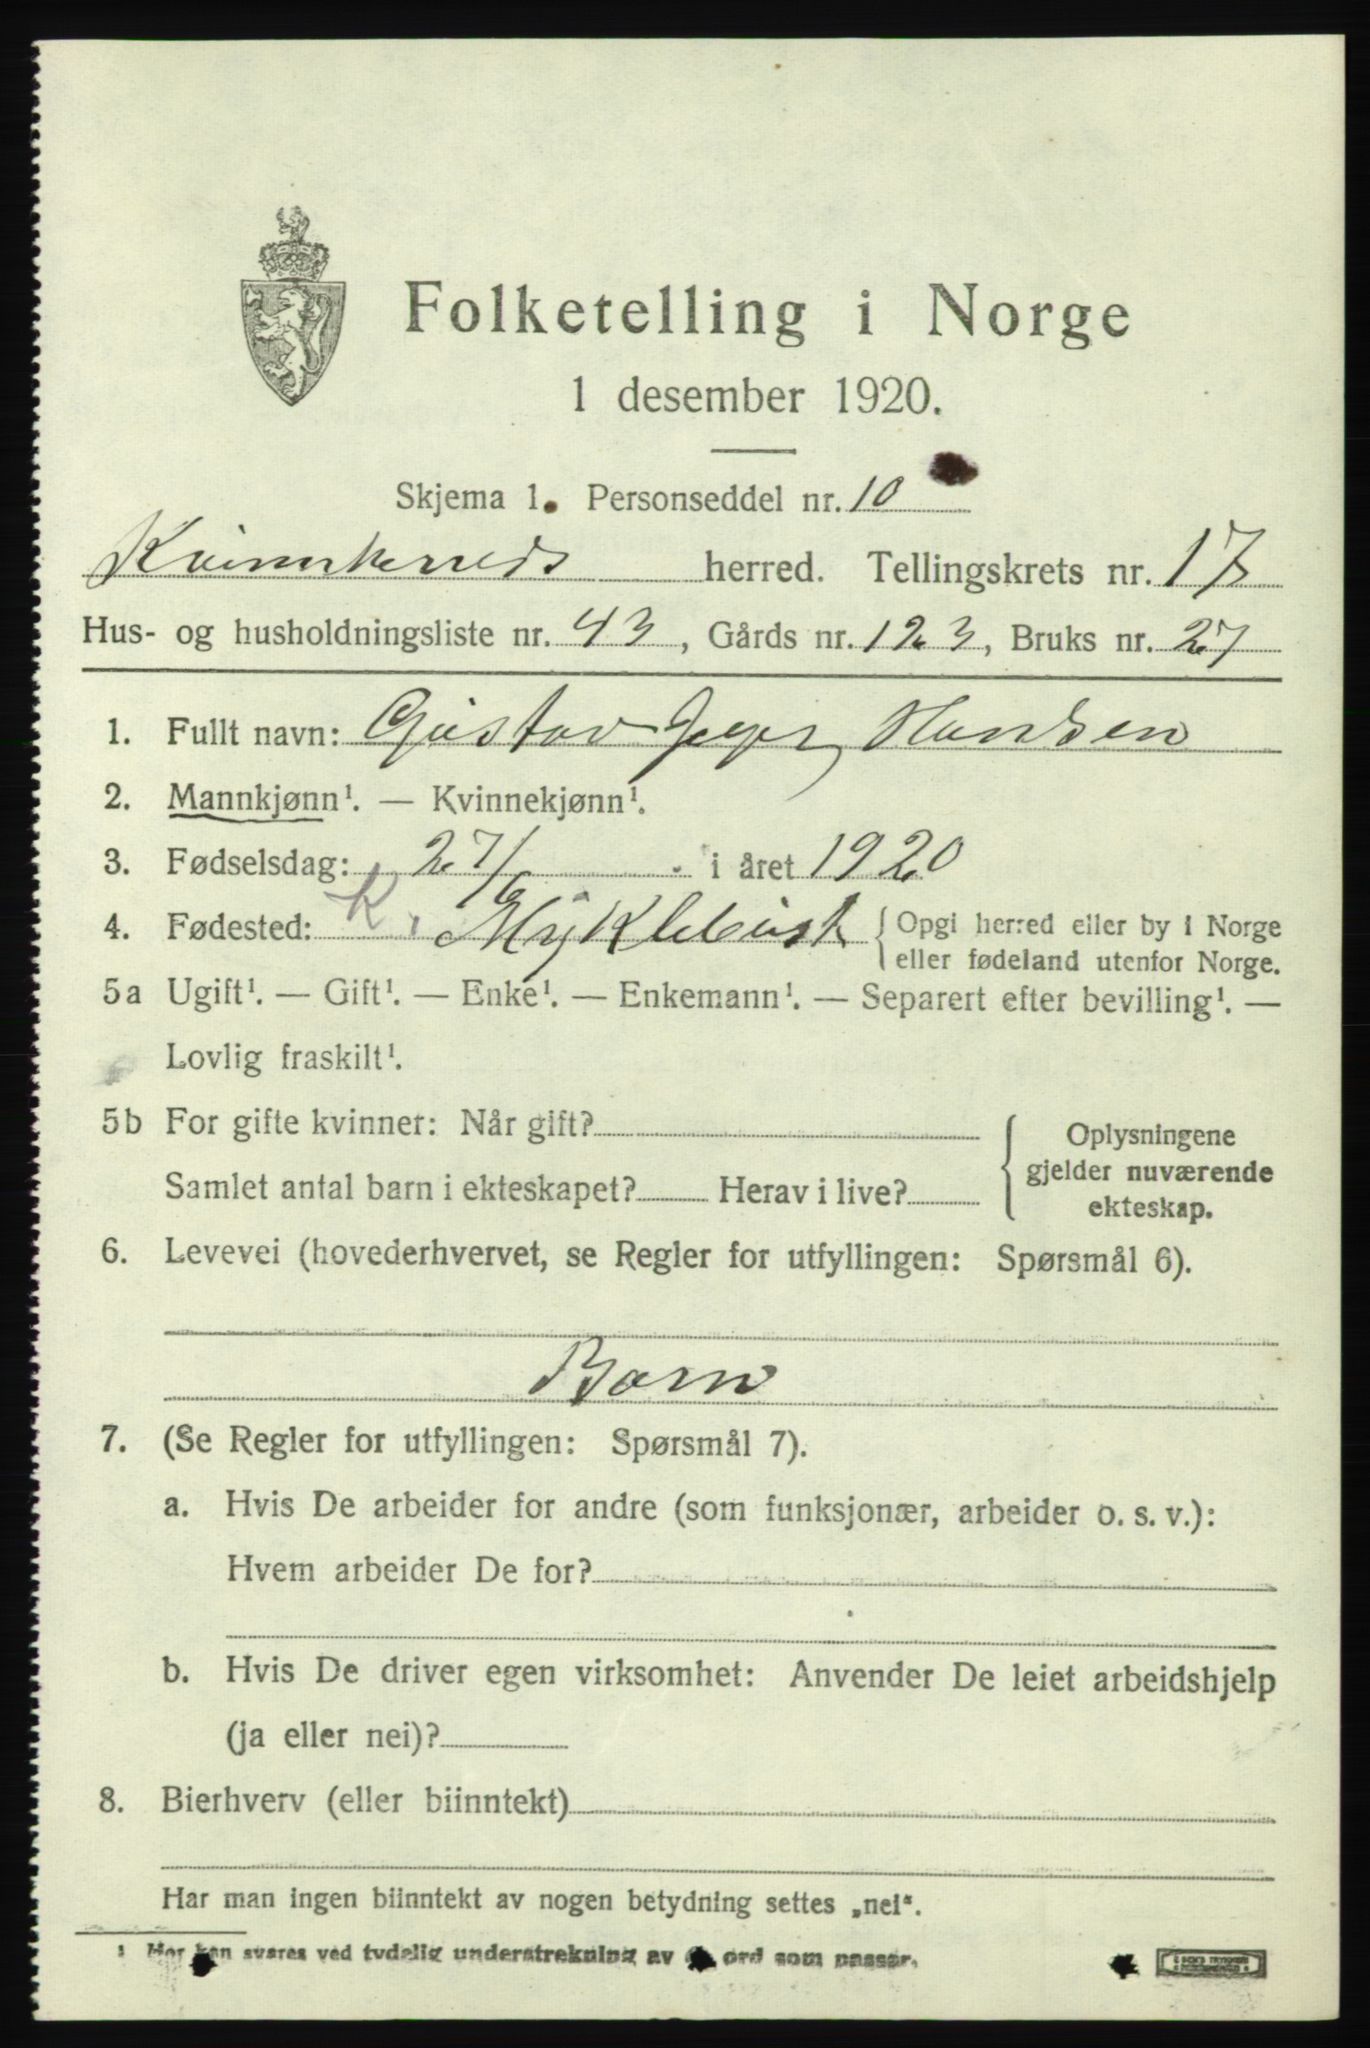 Folketelling i Norge
1 desember 1920.
Skjema 1. Personseddel nr. 10
Kvinnherreds herred. Tellingskrets nr. 17
Hus- og husholdningsliste nr. 43, Gårds nr. 123, Bruks nr. 27
1. Fullt navn: Gustav Hansen
2. Mannkjønn¹. — Kvinnekjønn¹.
3. Fødselsdag: 27/6 i året 1920
4. Fødested: K. Myklebust { Opgi herred eller by i Norge
eller fødeland utenfor Norge.
5a Ugift¹. — Gift¹. — Enke¹. — Enkemann¹. — Separert efter bevilling¹. —
Lovlig fraskilt¹.
5b For gifte kvinner: Når gift?
Samlet antal barn i ekteskapet? Herav i live?
{ Oplysningene
gjelder nuværende
ekteskap.
6. Levevei (hovederhvervet, se Regler for utfyllingen: Spørsmål 6).
Barn
7. (Se Regler for utfyllingen: Spørsmål 7).
a. Hvis De arbeider for andre (som funksjonær, arbeider o. s. v.):
Hvem arbeider De for?
b. Hvis De driver egen virksomhet: Anvender De leiet arbeidshjelp
(ja eller nei)?
8. Bierhverv (eller biinntekt)
Har man ingen biinntekt av nogen betydning settes „nei“.
¹ Her kan svares ved tydelig understrekning av ord som passer.